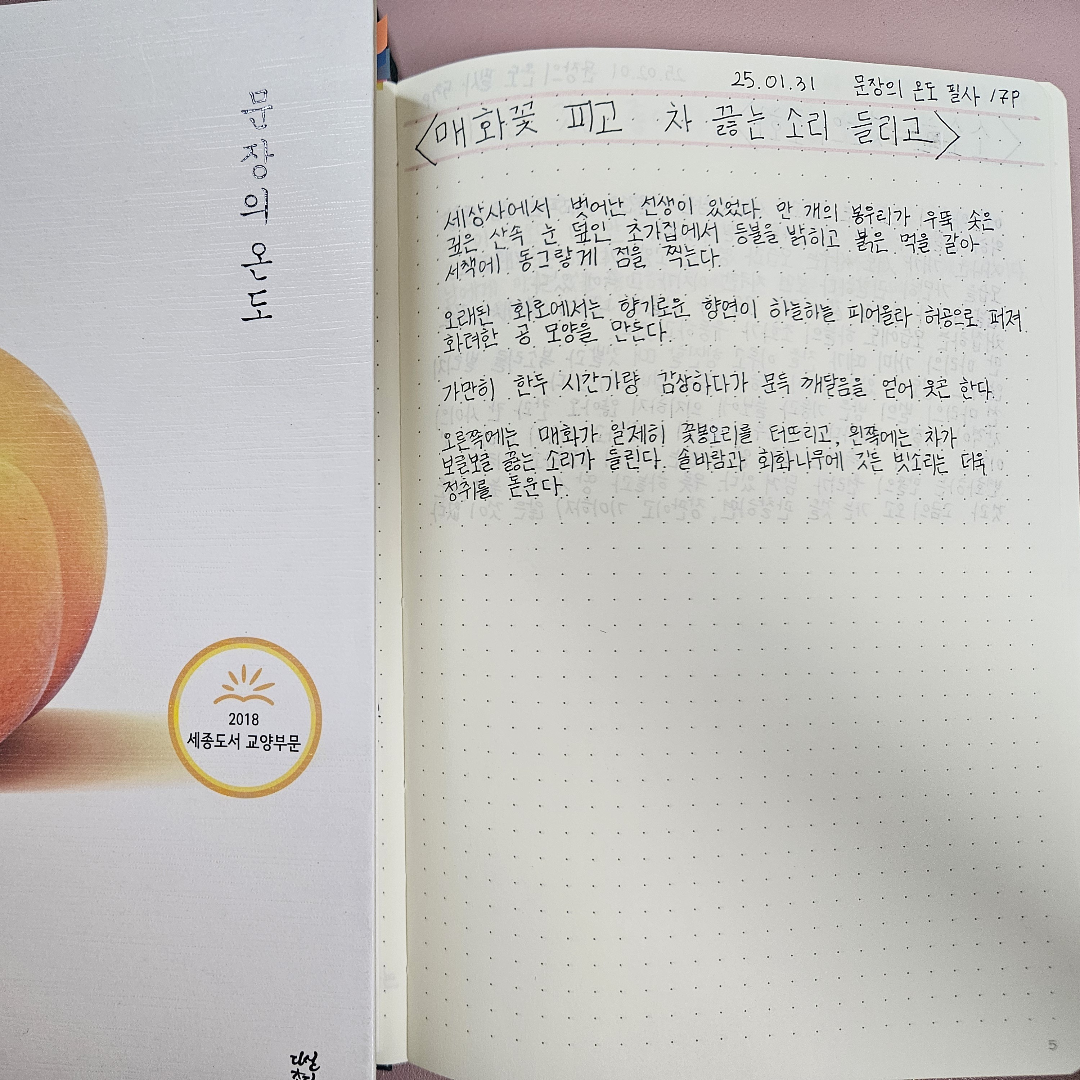 문장의 온도
2018
세종도서 교양부문
다산
초당
25.01.31 문장의 온도 필사 17P
<매화꽃 피고 차 끓는 소리 들리고>
세상사에서 벗어난 선생이 있었다. 만 개의 봉우리가 우뚝 솟은
깊은 산속 눈 덮인 초가집에서 등불을 밝히고 붉은 먹을 갈아
서책에 동그랗게 점을 찍는다.
오래된 화로에서는 향기로운 향연이 하늘하늘 피어올라 허공으로 퍼져
화려한 공 모양을 만든다.
가만히 한두 시간가량 감상하다가 문득 깨달음을 얻어 웃곤 한다.
오른쪽에는 매화가 일제히 꽃봉오리를 터뜨리고, 왼쪽에는 차가
보글보글 끓는 소리가 들린다. 솔바람과 회화나무에 깃든 빗소리는 더욱
정취를 돋운다.
5